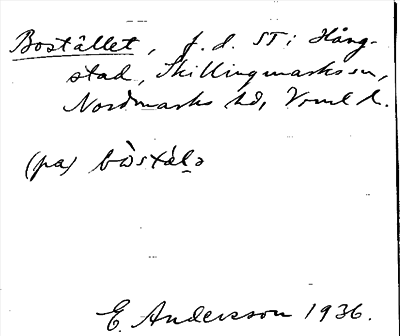 Boställlet, f.d. ST i Hång-
stad, Skillingmarks sn,
Nordmarks hd, Vrml l.
(på) bòstálə
E. Andersson 1936.